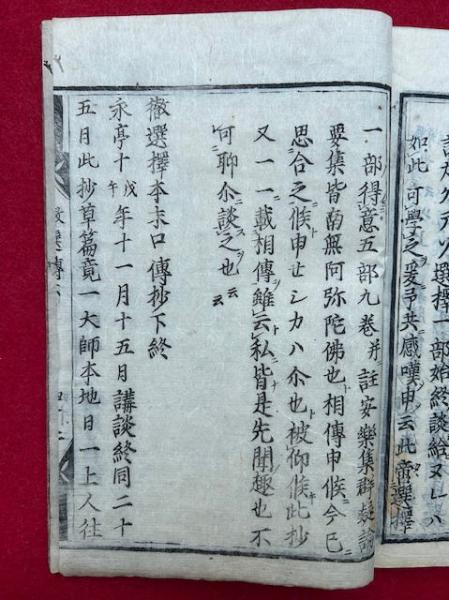 談給又レハ
選擇一部始終
如此可學之爰乎共感嘆申云此當選擇
一部得意五部九卷并註安樂集群疑論
要集皆南無阿弥陀佛也相傳申候今巳
思合之候申せシカハ尒也被仰候此抄
又一一載相傳雖云私皆是先聞趣也不
可聊尒談之也云云
徹選擇本末口傳抄下終
永亭十戊午年十一月十五月講談終同二十
五月此抄草篇竟一大師本地日一上人往